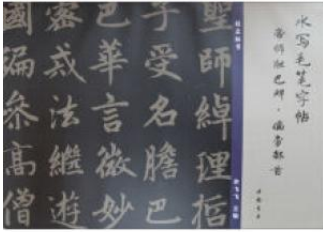 水写毛笔字帖
帝师胆巴碑·偏旁部首
聖師綽理哲
子受名膽巴
巴華言微妙
密戒法繼遊
國遍參高僧